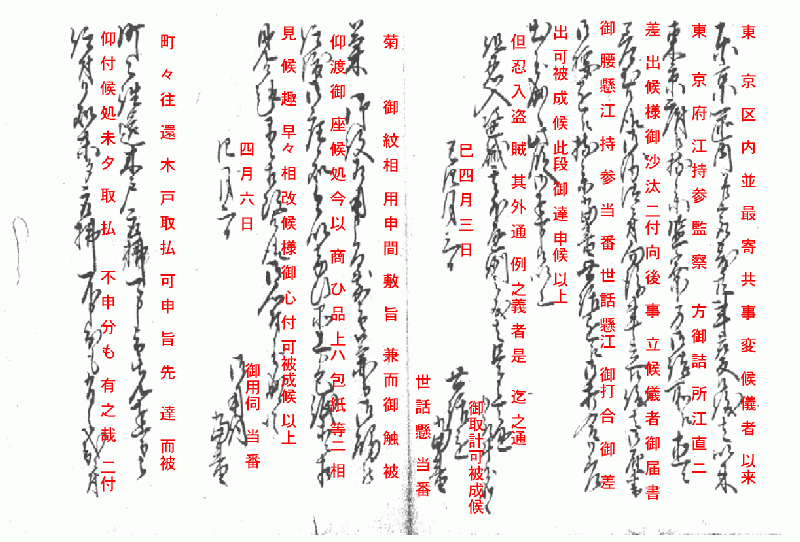 東京区内並最寄共事変候儀者以来
東京府江持参監察方御詰所江直ニ
差出候様御沙汰ニ付向後事立候儀者御届書
御腰懸江持参当番世話懸江御打合御差
出可被成候此段御達申候以上
巳四月三日
世話懸当番
但忍入盗賊其外通例之義者是迄之通
御取計可被成候
菊御紋相用申間敷旨兼而御触被
仰渡御座候処今以商ひ品上ハ包紙等ニ相
見候趣早々相改候様御心付可被成候以上
四月六日
御用伺当番
町々往還木戸取払可申旨先達而被
仰付候処未タ取払不申分も有之哉ニ付